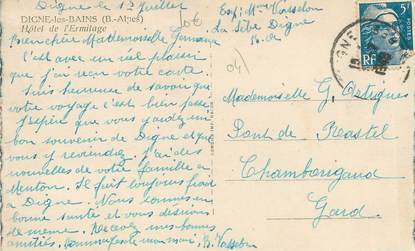 Digne le 1er Juillet
DIGNE-les-BAINS (B.-Alpes)
Hôtel de l'Ermitage
Bien chère Mademoiselle Germaine
C'est avec un réel plaisir
que j'ai reçu votre carte.
Suis heureuse de savoir que
votre voyage c'est bien passé
J'espère que vous gardez un
bon souvenir de Digne et que
vous y reviendrez. J'ai des
nouvelles de votre famille à
Menton. Il fait toujours froid
à Digne. Nous sommes en
bonne santé et vous désirons
de même. Recevez mes bonnes
amitiés. 
Vasselon
Exp: Mme Vasselon
La Sèbe Digne
B. A.
04
Mademoiselle G. Artigues
Pont de Rastel
Chamborigaud
Gard.
DIGNE
5F
POSTES
RF